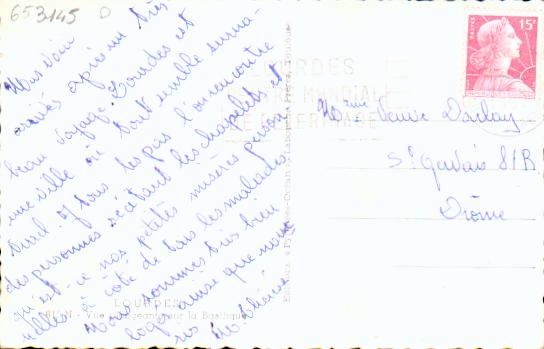 653145 D
Nous voici
arrivés après un très
beau voyage. Lourdes est
une ville où tout semble surna-
turel. À tous les pas l'on rencontre
des personnes récitant les chapelets, et
qu'est-ce nos petites misères person-
nelles à côté de tous les malades
Nous sommes très bien
logés ainsi que nous
LOURDES
Vue plongeante sur la Basilique
LOURDES
MONDIAL
DE PELERINAGE
POSTES
15F
Mme Veuve Darlay
St Gervais S/R
Drôme